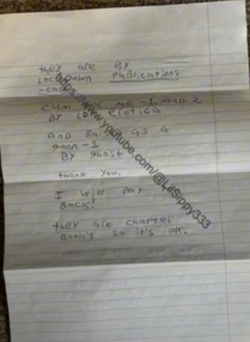 they are BY
LOCKDOWN PUBLICATIONS
-CASH
CUM FOR ME -1 AND 2
BY LDP EROTICA
AND RAISED AS A
goon-1
BY ghost
thank you,
I will pay
BACK!
they are chapter
BOOK'S SO it's OK.
https://www.youtube.com/@LilSippy333